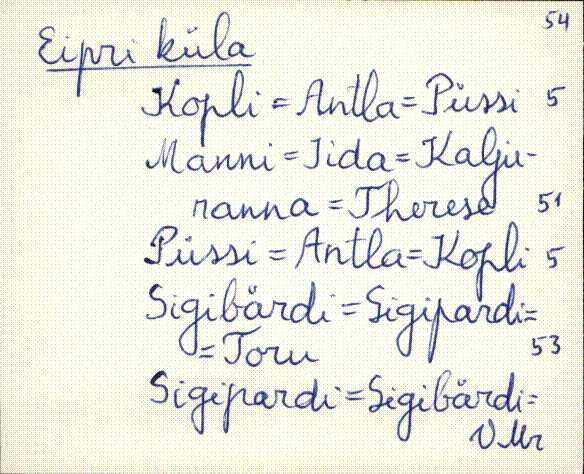 54
Eipri küla
Kopli = Antla = Püssi 5
Manni = Iida = Kalju-
ranna = Therese 51
Püssi = Antla = Kopli 5
Sigibärdi = Sigipardi =
= Toru 53
Sigipardi = Sigibärdi =
V Mr